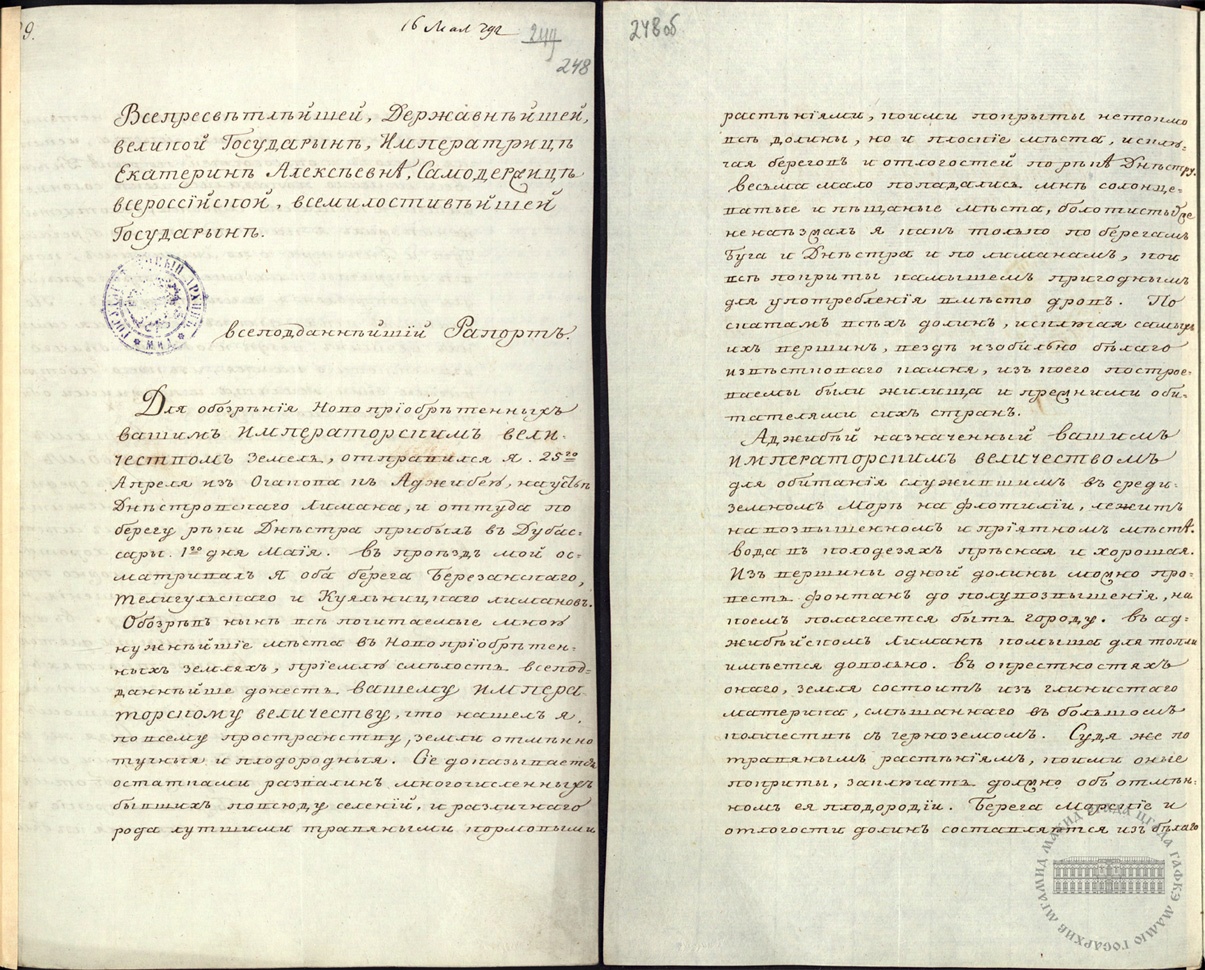 9.
16 Мая 792
249
248
Всепресвѣтлѣйшей, Державнѣйшей,
великой Государынѣ, Императрицѣ
Екатеринѣ Алексѣевнѣ, Самодержицѣ
всероссійской, всемилостивѣйшей
Государынѣ.
МИД
всеподданнѣйшій Рапортъ.
Для обозрѣнія Новопріобрѣтенныхъ
вашимъ Императорскимъ вели-
чествомъ Земель, отправился я 25го
Апреля изъ Очакова къ Аджибею, на устье
Днѣстровскаго Лимана, и оттуда по
берегу рѣки Днѣстра прибылъ въ Дубас-
сары 1го дня Маія. Въ проѣздъ мой ос-
матривалъ я оба берега Березанскаго,
Телигульскаго и Куяльницкаго лимановъ.
Обозрѣвъ нынѣ всѣ почитаемые мною
нужнѣйшіе мѣста въ Новопріобрѣтен-
ныхъ земляхъ, пріемлю смѣлость всепод-
даннѣйше донесть вашему импера
торскому величеству, что нашелъ я.
по всему пространству, земли отмѣнно
тучныя и плодородныя. Сіе доказывается
остатками развалинъ многочисленныхъ
бывшихъ повсюду селеній, и различнаго
рода лутшими травяными кормовыми
248об
растѣніями, коими покрыты нетокмо
всѣ долины, но и плоскіе мѣста, исклю-
чая береговъ и отлогостей по рѣкѣ Днѣстру.
весьма мало попадались мнѣ солонце-
ватые и пѣщаные мѣста, болотистыхъ же
ненаѣзжалъ я какъ только по берегамъ
Буга и Днѣстра и по лиманамъ, кои
всѣ покриты камышемъ пригоднымъ
для употребленія вмѣсто дровъ. По
скатамъ всѣхъ долинъ, исключая самыхъ
ихъ вершинъ, вездѣ изобильно бѣлаго
извѣстковаго камня, изъ коего построе-
ваемы были жилища и прежними оби-
тателями сихъ странъ.
Аджибѣй назначенный вашимъ
императорскимъ величествомъ
для обитанія служившимъ въ среди-
земномъ Морѣ на флотиліи, лежитъ
на возвышенномъ и пріятномъ мѣстѣ.
Вода въ колодезяхъ прѣсная и хорошая.
Изъ вершины одной долины можно про-
весть фонтанъ до полувозвышенія, на
коемъ полагается быть городу. въ ад-
жибѣйскомъ Лиманѣ комыша для топли
имѣется довольно. въ окрестностяхъ
онаго, земля состоитъ изъ глинистаго
материка, смѣшаннаго въ большомъ
количествѣ съ черноземомъ. Судя же по
травянымъ растѣніямъ, коими оные
покриты, заключать должно объ отмѣн-
номъ ея плодородіи. Берега Морскіе и
отлогости долинъ составляются изъ бѣлаго
МГАМИД МАМИД ГАФКЭ МАМЮ ГОСАРХИВ